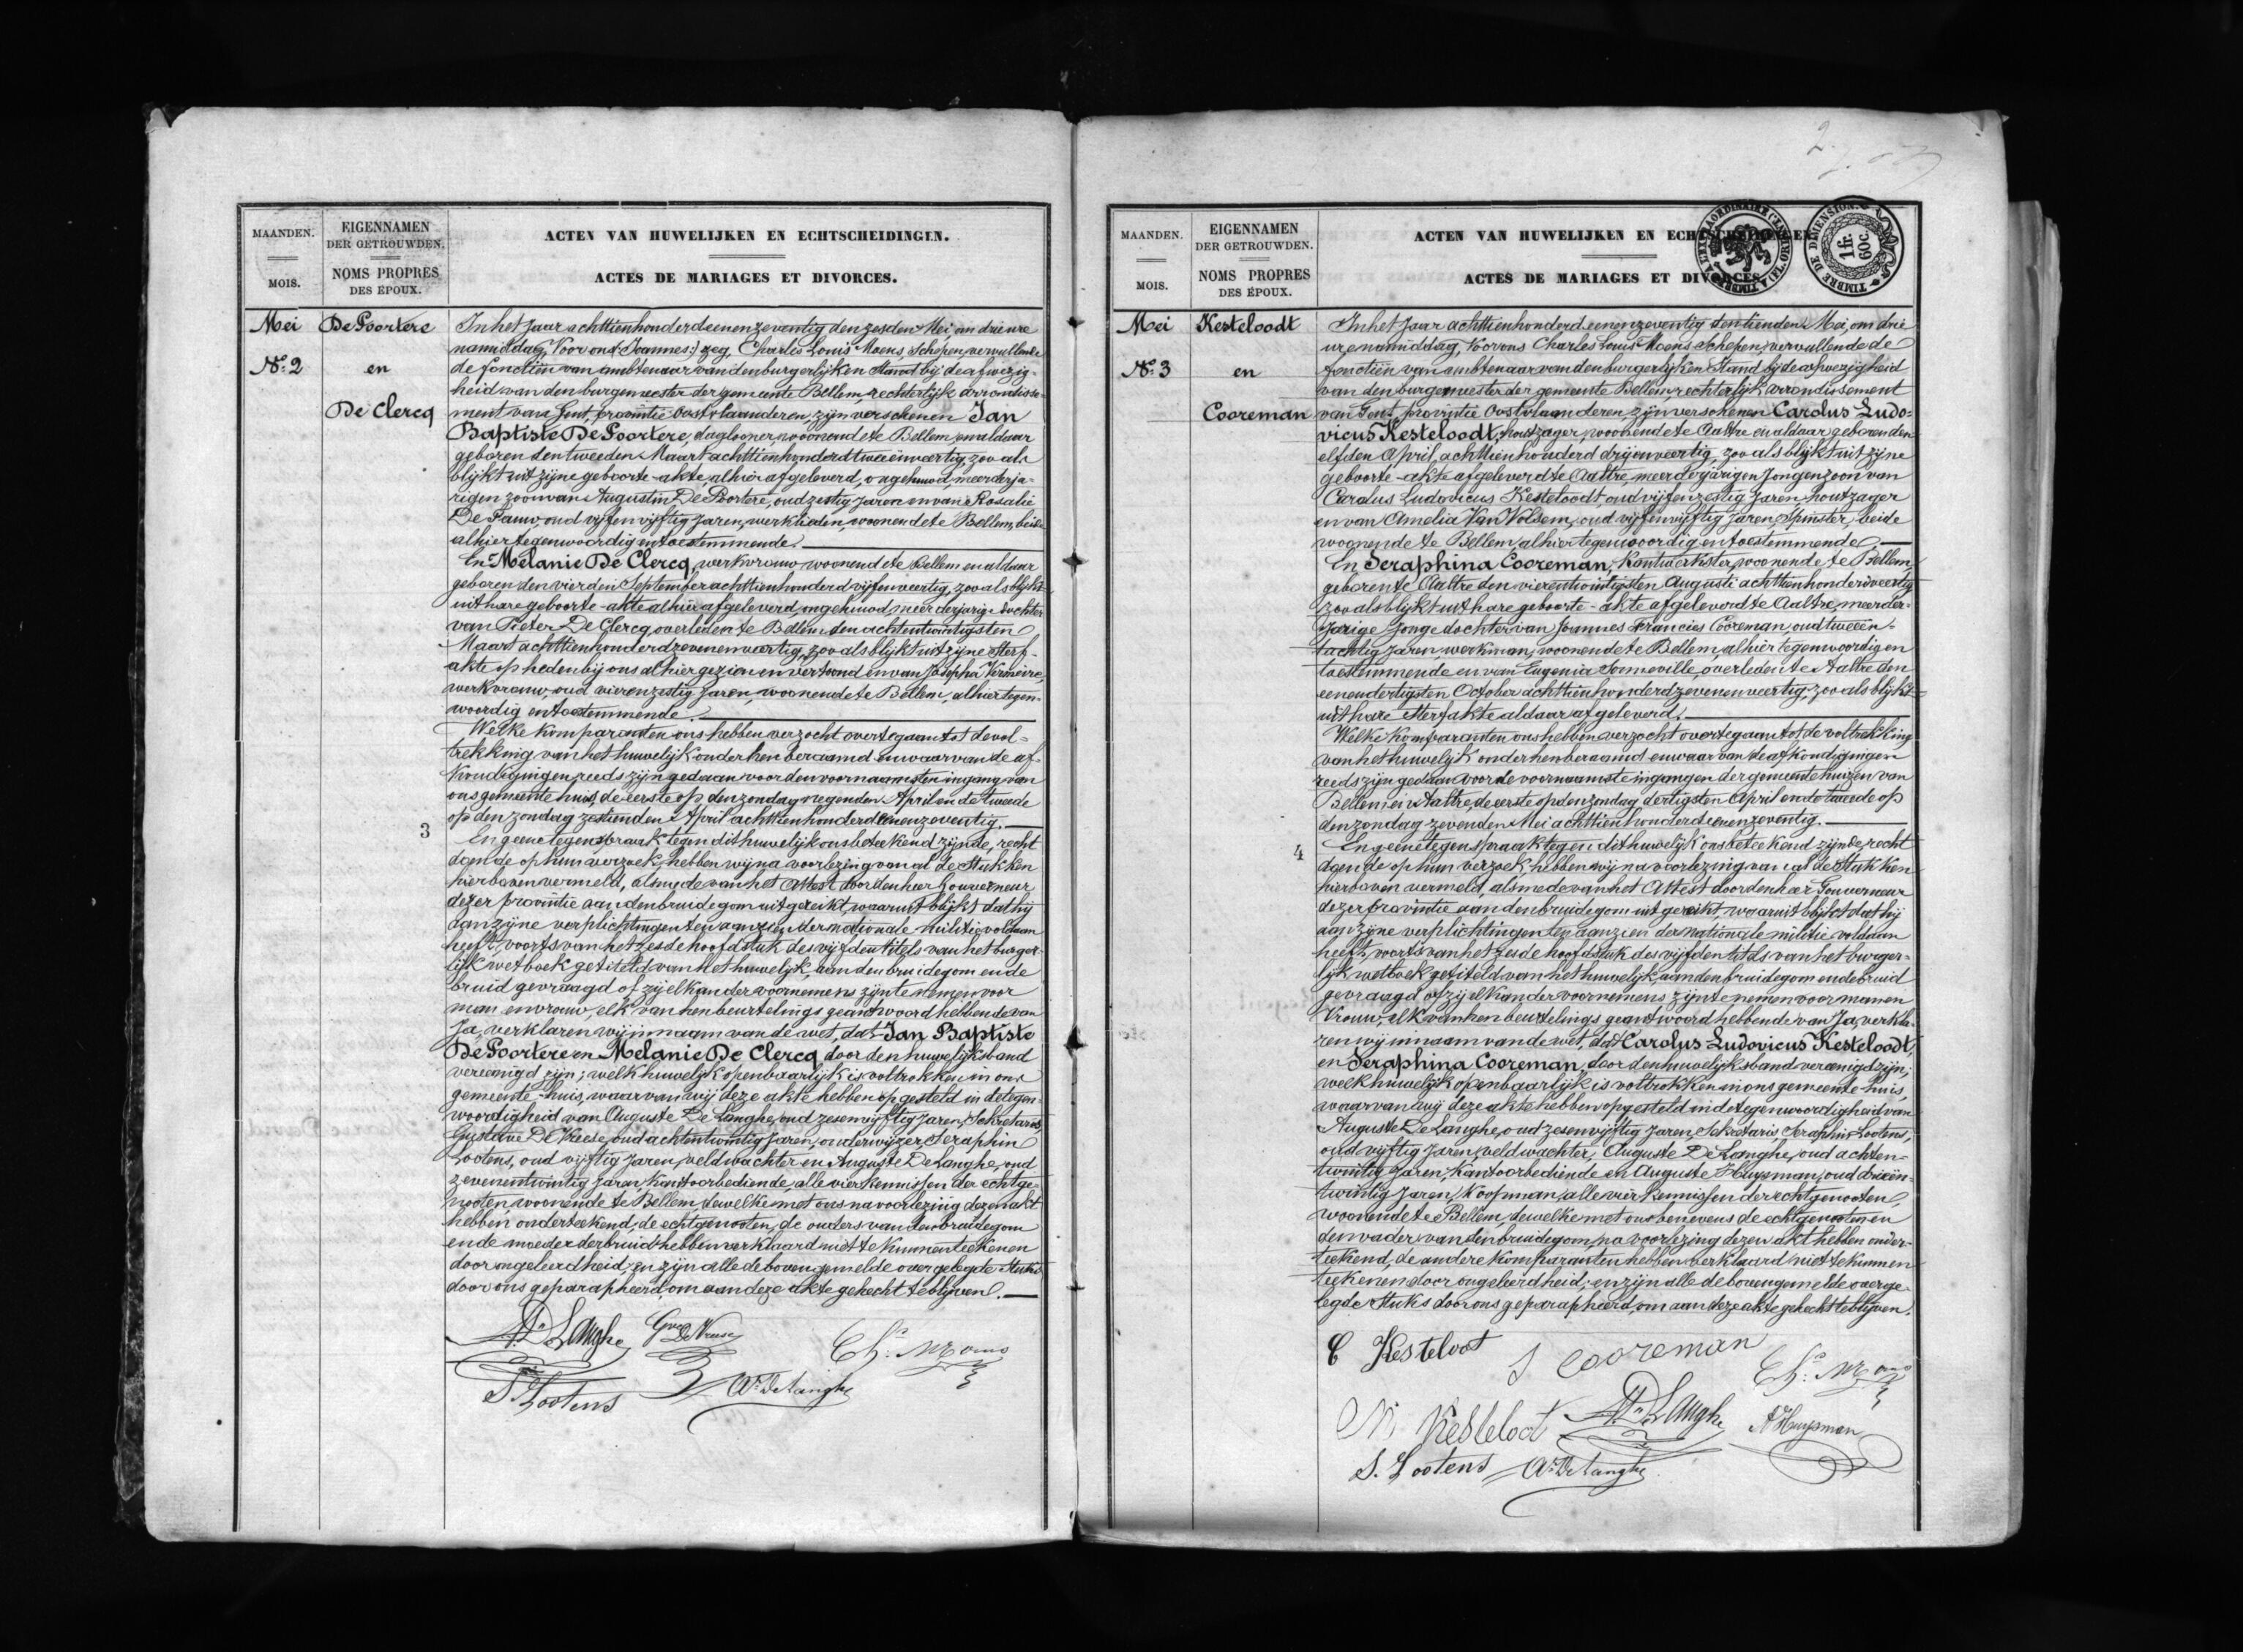 MAANDEN.
MOIS.
EIGENNAMEN
DER GETROUWDEN.
NOMS PROPRES
DES ÉPOUX.
ACTEN VAN HUWELIJKEN EN ECHTSCHEIDINGEN.
ACTES DE MARIAGES ET DIVORCES.
Mei
No. 2
De Poortere
en
De Clercq
In het jaar achttienhonderd eenenzeventig den zesden Mei om drie ure
namiddag, Voor ons (Joannes) gez. Charles Louis Moens, Schepen, vervullende
de fonctiën van ambtenaar van den burgerlijken Stand bij de afwezig-
heid van den burgemeester der gemeente Bellem, rechterlijk arrondisse-
ment van Gent, provintie Oostvlaanderen, zijn verschenen Jan
Baptiste De Poortere, daglooner, woonende te Bellem, en aldaar
geboren den tweeden Maart achttienhonderd tweeënveertig, zoo als
blijkt uit zijne geboorte-akte, alhier afgeleverd, ongehuwd, meerderja-
rigen zoon van Augustin De Poortere, oud zestig jaren en van Rosalie
De Pauw, oud vijfenvijftig jaren, werklieden, woonende te Bellem, beide
alhier tegenwoordig en toestemmende.
En Melanie De Clercq, werkvrouw, woonende te Bellem en aldaar
geboren den vierden September achttienhonderd vijfenveertig, zoo als blijkt
uit hare geboorte-akte alhier afgeleverd, ongehuwd meerderjarige dochter
van Pieter De Clercq, overleden te Bellem den achtentwintigsten
Maart achttienhonderd zevenenveertig, zoo als blijkt uit zijne sterf-
akte op heden bij ons alhier gezien en vertoond en van Josepha Vermeire,
werkvrouw, oud vierenzestig jaren, woonende te Bellem, alhier tegen-
woordig en toestemmende.
Welke komparanten ons hebben verzocht over te gaan tot de vol-
trekking van het huwelijk onder hen beraamd en waarvan de af-
kondigingen reeds zijn gedaan voor den voornaamsten ingang van
ons gemeente huis, de eerste op den zondag negenden April en de tweede
op den zondag zestienden April achttienhonderd eenenzeventig.
3
En geene tegenspraak tegen dit huwelijk ons beteekend zijnde, recht
doende op hun verzoek, hebben wij na voorlezing van al de Stukken
hierboven vermeld, alsmede van het Attest door den heer Gouverneur
dezer provintie aan den bruidegom uitgereikt, waaruit blijkt dat hij
aan zijne verplichtingen ten aanzien der nationale militie voldaan
heeft, voorts van het zesde hoofdstuk des vijfden titels van het burger-
lijk wetboek getiteld van het huwelijk, aan den bruidegom en de
bruid gevraagd of zij elkander voornemens zijn te nemen voor
man en vrouw, elk van hen beurtelings geantwoord hebbende van
Ja, verklaren wij in naam van de wet, dat Jan Baptiste
De Poortere en Melanie De Clercq door den huwelijksband
vereenigd zijn; welk huwelijk openbaarlijk is voltrokken in ons
gemeente-huis, waarvan wij deze akte hebben opgesteld in de tegen-
woordigheid van Auguste De Langhe, oud zesenvijftig jaren, Sekretaris,
Gustave De Vreese, oud achtentwintig jaren, onderwijzer, Seraphin
Lootens, oud vijftig jaren, veldwachter en Auguste De Langhe, oud
zevenentwintig jaren, kantoorbediende, alle vier kennissen der echtge-
nooten, woonende te Bellem, dewelke met ons na voorlezing dezen akt
hebben onderteekend, de echtgenooten, de ouders van den bruidegom
en de moeder der bruid hebben verklaard niet te kunnen teekenen
door ongeleerdheid, en zijn alle de bovengemelde overgelegde Stuks
door ons geparapheerd, om aan deze akte gehecht te blijven.
A. De Langhe
Gve De Vreese
Ch. L. Moens
S. Lootens
Ate De Langhe
2
MAANDEN.
MOIS.
EIGENNAMEN
DER GETROUWDEN.
NOMS PROPRES
DES ÉPOUX.
ACTEN VAN HUWELIJKEN EN ECHTSCHEIDINGEN.
ACTES DE MARIAGES ET DIVORCES.
TIMBRE DE DIMENSION.
1 fr.
60c.
Mei
No. 3
Kesteloodt
en
Cooreman
In het jaar achttienhonderd eenenzeventig den tienden Mei, om drie
ure namiddag, Voor ons Charles Louis Moens Schepen, vervullende de
fonctiën van ambtenaar van den burgerlijken Stand bij de afwezigheid
van den burgemeester der gemeente Bellem, rechterlijk arrondissement
van Gent, provintie Oostvlaanderen, zijn verschenen Carolus Ludo-
vicus Kesteloodt, houtzager, woonende te Aaltre en aldaar geboren den
elfden April achttienhonderd drijenveertig, zoo als blijkt uit zijne
geboorte-akte afgeleverd te Aaltre, meerderjarigen Jongen zoon van
Carolus Ludovicus Kesteloodt, oud vijfenzestig jaren, houtzager
en van Amelia Van Wolsem, oud vijfenvijftig jaren, Spinster, beide
woonende te Bellem, alhier tegenwoordig en toestemmende.
En Seraphina Cooreman, Kantwerkster, woonende te Bellem,
geboren te Aaltre den vierentwintigsten Augusti achttienhonderd veertig
zoo als blijkt uit hare geboorte-akte afgeleverd te Aaltre, meerder-
jarige Jonge dochter van Joannes Francies Cooreman, oud tweeën-
tachtig jaren, werkman, woonende te Bellem, alhier tegenwoordig en
toestemmende en van Eugenia Sonneville, overleden te Aaltre den
eenendertigsten October achttienhonderd zevenenveertig, zoo als blijkt
uit hare Sterfakte aldaar afgeleverd.
Welke komparanten ons hebben verzocht over te gaan tot de voltrekking
van het huwelijk onder hen beraamd en waar van de afkondigingen
reeds zijn gedaan voor de voornaamste ingangen der gemeentehuizen van
Bellem en Aaltre, de eerste op den zondag dertigsten April en de tweede op
den zondag zevenden Mei achttienhonderd eenenzeventig.
4
En geene tegenspraak tegen dit huwelijk ons beteekend zijnde, recht
doende op hun verzoek, hebben wij na voorlezing van al de Stukken
hierboven vermeld, alsmede van het Attest door den heer Gouverneur
dezer provintie aan den bruidegom uitgereikt, waaruit blijkt dat hij
aan zijne verplichtingen ten aanzien der nationale militie voldaan
heeft, voorts van het zesde hoofdstuk des vijfden titels van het burger-
lijk wetboek getiteld van het huwelijk, aan den bruidegom en de bruid
gevraagd of zij elkander voornemens zijn te nemen voor man en
Vrouw, elk van hen beurtelings geantwoord hebbende van Ja, verkla-
ren wij in naam van de wet, dat Carolus Ludovicus Kesteloodt,
en Seraphina Cooreman, door den huwelijksband vereenigd zijn;
welk huwelijk openbaarlijk is voltrokken in ons gemeente-huis,
waarvan wij deze akte hebben opgesteld in de tegenwoordigheid van
Auguste De Langhe, oud zesenvijftig jaren, Sekretaris, Seraphin Lootens,
oud vijftig jaren, veldwachter, Auguste De Langhe, oud achten-
twintig jaren, Kantoorbediende en Auguste Huysman, oud drieën-
twintig jaren, Koopman, alle vier kennissen der echtgenooten,
woonende te Bellem, dewelke met ons benevens de echtgenooten en
den vader van den bruidegom, na voorlezing dezen akt hebben onder-
teekend, de andere komparanten hebben verklaard niet te kunnen
teekenen door ongeleerdheid; en zijn alle de bovengemelde overge-
legde Stuks door ons geparapheerd, om aan deze akte gehecht te blijven.
C Kesteloot
S Cooreman
Ch. L. Moens
Kesteloot
A. De Langhe
A Huysman
S. Lootens
Ate De Langhe